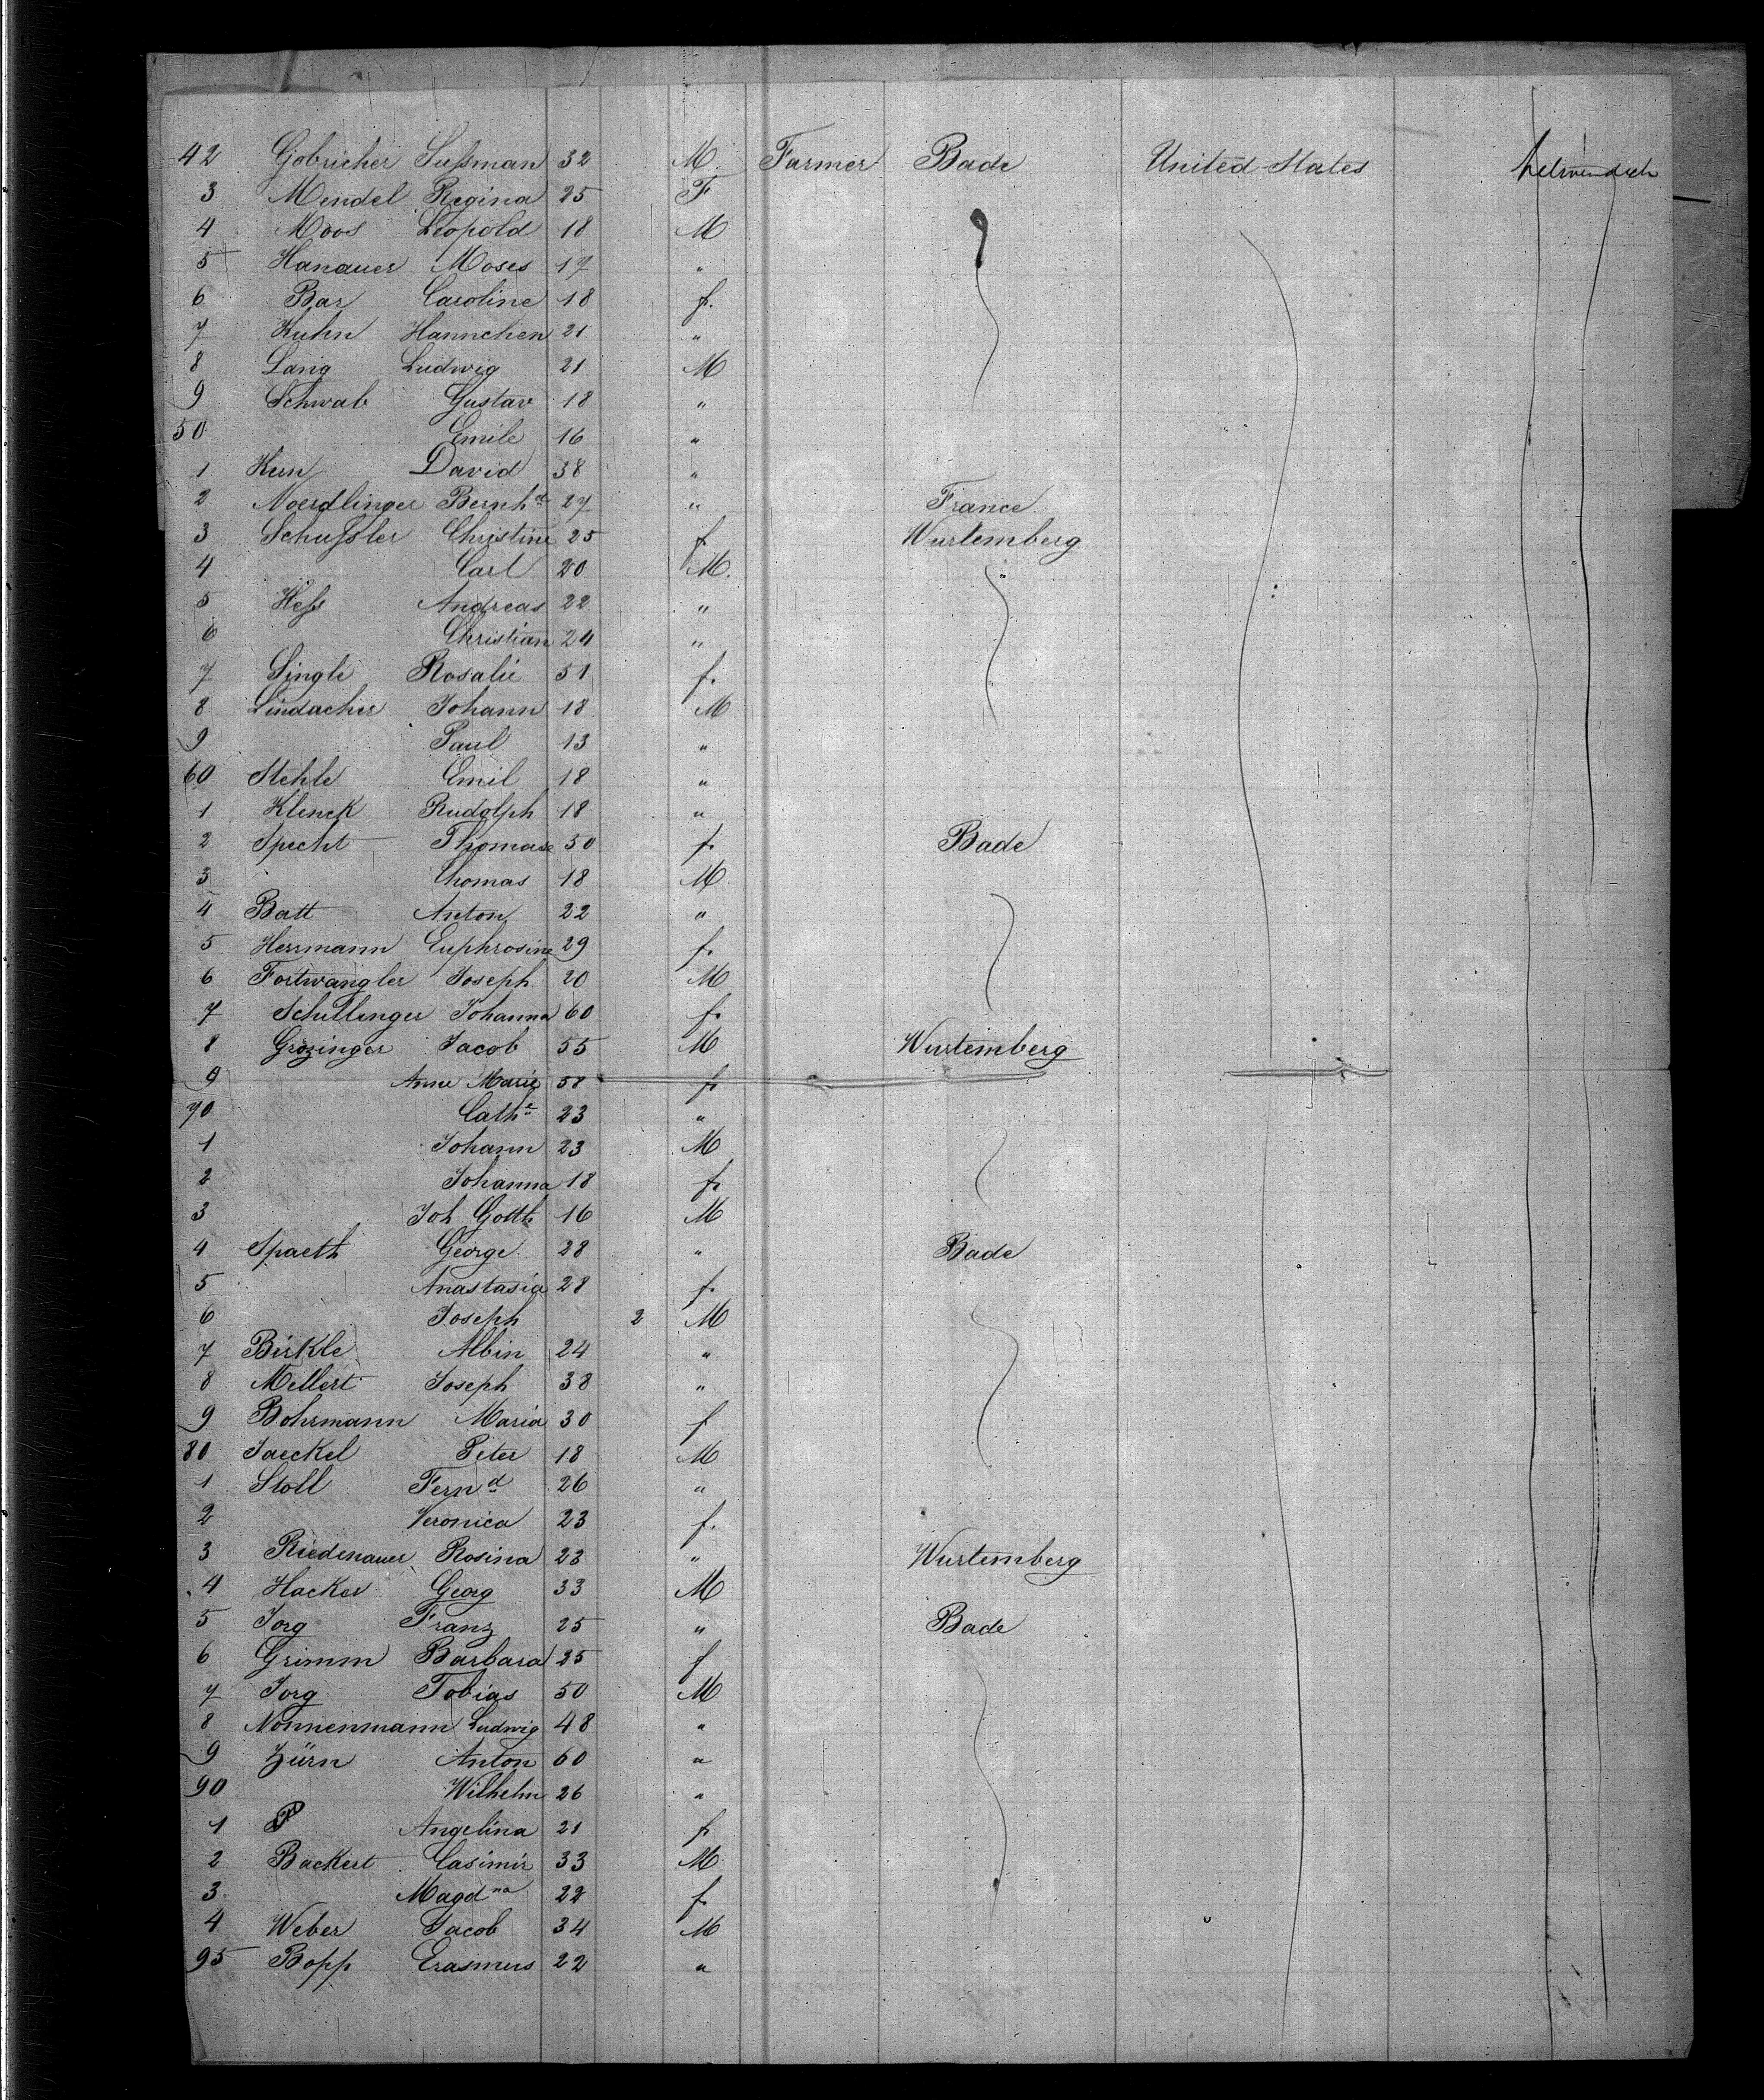 42 Gobricher Sussman 32 M. Farmer Bade United States
3 Mendel Regina 25 F
4 Moos Leopold 18 M
5 Hanauer Moses 17 "
6 Bar Caroline 18 f.
7 Kuhn Hannchen 21 "
8 Lang Ludwig 21 M
9 Schwab Gustav 18 "
50 Emile 16 "
1 Kun David 38 "
2 Noerdlinger Bernhd 27 " France
3 Schussler Christine 25 f Wurtemberg
4 Carl 20 M.
5 Hess Andreas 22 "
6 Christian 24 "
7 Single Rosalie 51 f.
8 Lindacher Johann 18 M
9 Paul 13 "
60 Stehle Emil 18 "
1 Klenck Rudolph 18 "
2 Specht Thomase 50 f. Bade
3 Thomas 18 M
4 Batt Anton 22 "
5 Herrmann Euphrosine 29 f.
6 Fortwangler Joseph 20 M
7 Schillinger Johanna 60 f.
8 Grozinger Jacob 55 M Wurtemberg
9 Anne Marie 58 f
70 Cathe 23 "
1 Johann 23 M
2 Johanna 18 f.
3 Joh Gottb 16 M
4 Spaeth George 28 " Bade
5 Anastasia 28 f.
6 Joseph 2 M
7 Birkle Albin 24 "
8 Mellert Joseph 38 "
9 Bohrmann Maria 30 f
80 Jaeckel Peter 18 M
1 Stoll Fernd 26 "
2 Veronica 23 f.
3 Riedenauer Rosina 23 " Wurtemberg
4 Hacker Georg 33 M
5 Jorg Franz 25 " Bade
6 Grimm Barbara 25 f
7 Jorg Tobias 50 M
8 Nonnenmann Ludwig 48 "
9 Zürn Anton 60 "
90 Wilhelm 26 "
1 Angelina 21 f
2 Backert Casimir 33 M
3. Magdna 22 f.
4 Weber Jacob 34 M
95 Bopp Erasmus 22 "